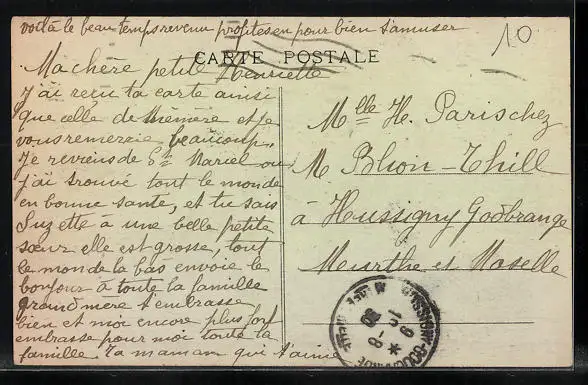 voilà le beau temps revenu profites en pour bien s'amuser
10
CARTE POSTALE
Ma chère petite Henriette
j'ai reçu ta carte ainsi
que celle de Mémère et je
vous remercie beaucoup,
Je reviens de Ste Marie ou
j'ai trouvé tout le monde
en bonne sante, et tu sais
Suzette à une belle petite
sœur elle est grosse, tout
le monde la bas envoie le
bonjour à toute ta famille
Grand mère t'embrasse
bien et moi encore plus fort
embrasse pour moi toute la
famille. Ta maman qui t'aime
Mlle H. Paris chez
M Blion-Thill
à Hussigny Godbrange
Meurthe et Moselle
HUSSIGNY-GODBRANGE